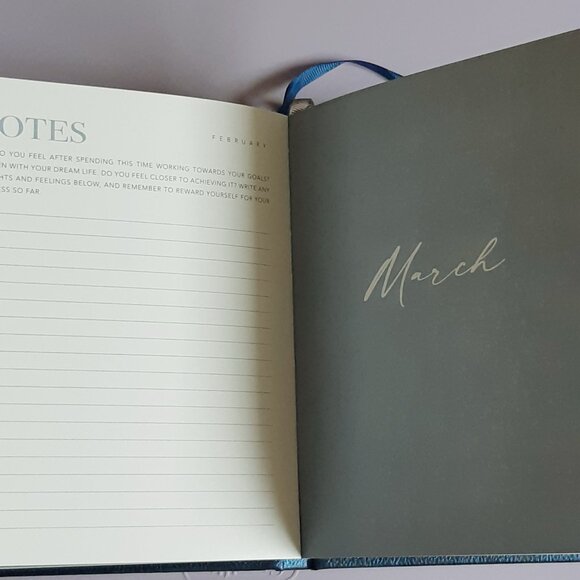 OTES
FEBRUARY
O YOU FEEL AFTER SPENDING THIS TIME WORKING TOWARDS YOUR GOALS?
EN WITH YOUR DREAM LIFE. DO YOU FEEL CLOSER TO ACHIEVING IT? WRITE ANY
HTS AND FEELINGS BELOW, AND REMEMBER TO REWARD YOURSELF FOR YOUR
ESS SO FAR.
March